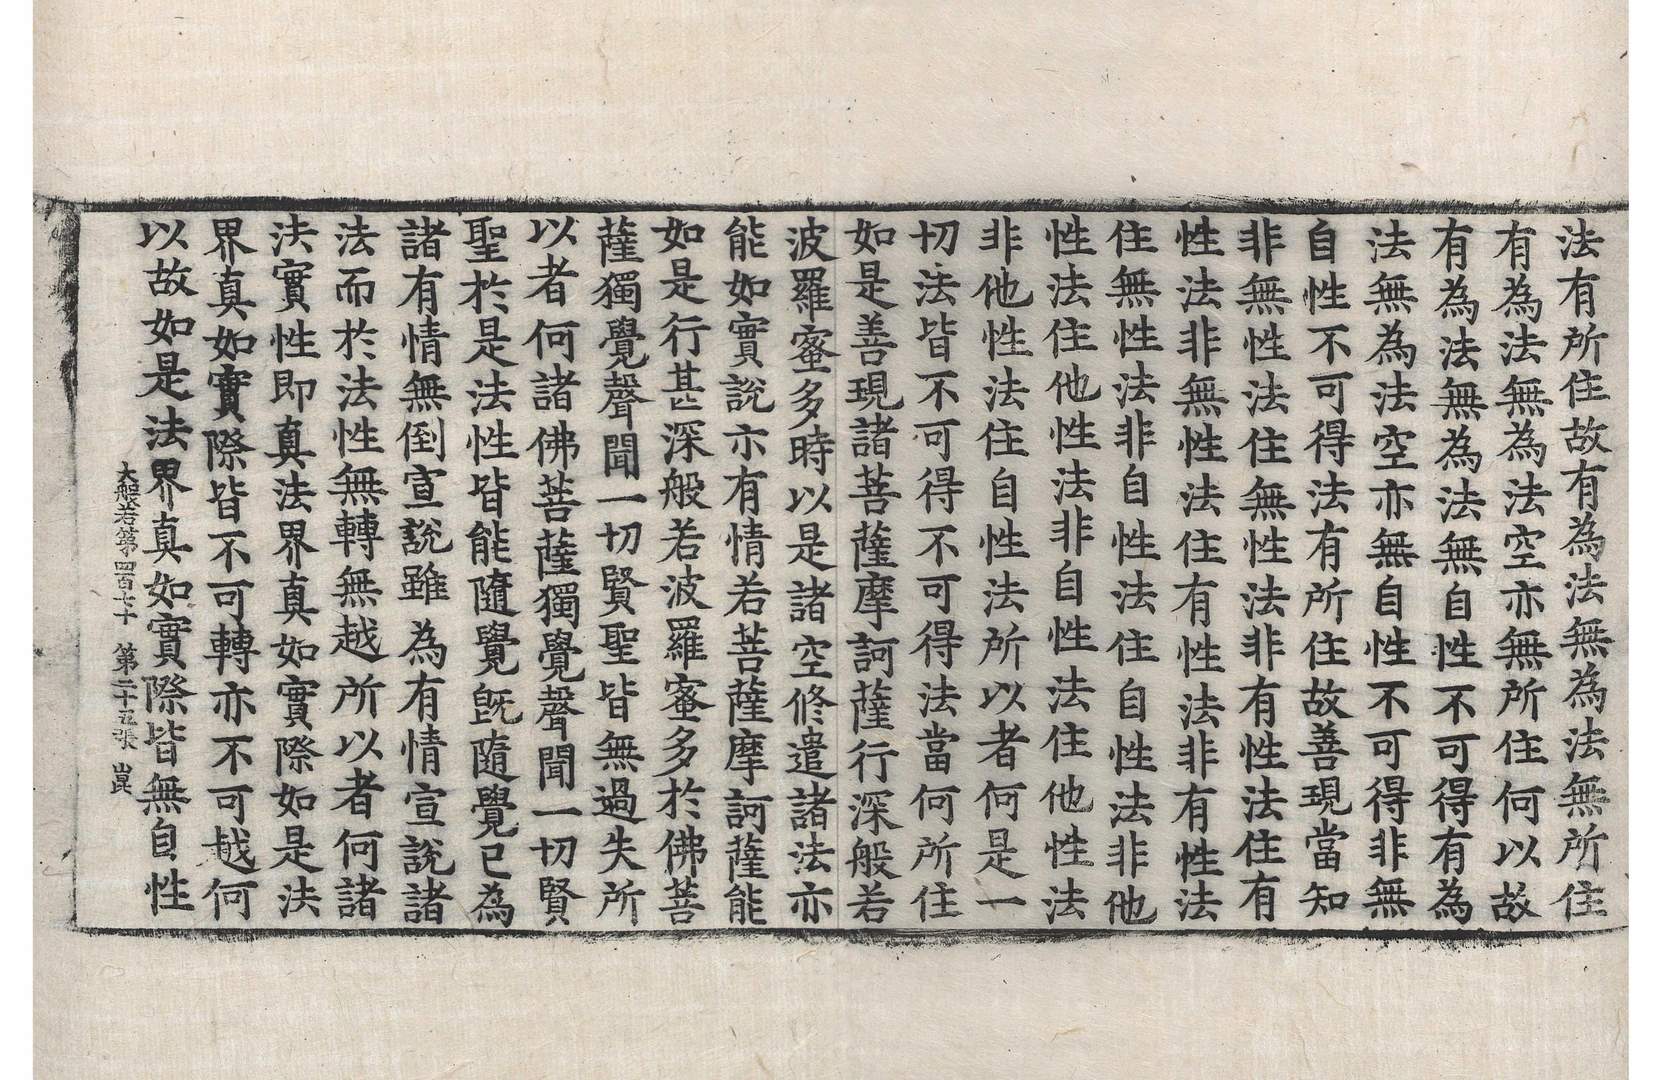 法有所住故有為法無為法無所住
有為法無為法空亦無所住何以故
有為法無為法無自性不可得有為
法無為法空亦無自性不可得非無
自性不可得法有所住故善現當知
非無性法住無性法非有性法住有
性法非無性法住有性法非有性法
住無性法非自性法住自性法非他
性法住他性法非自性法住他性法
非他性法住自性法所以者何是一
切法皆不可得不可得法當何所住
如是善現諸菩薩摩訶薩行深般若
波羅蜜多時以是諸空修遣諸法亦
能如實說亦有情若菩薩摩訶薩能
如是行甚深般若波羅蜜多於佛菩
薩獨覺聲聞一切賢聖皆無過失所
以者何諸佛菩薩獨覺聲聞一切賢
聖於是法性皆能隨覺既隨覺已為
諸有情無倒宣說雖為有情宣說諸
法而於法性無轉無越所以者何諸
法實性即真法界真如實際如是法
界真如實際皆不可轉亦不可越何
以故如是法界真如實際皆無自性
大般若第四百七十 第二十五張 崑